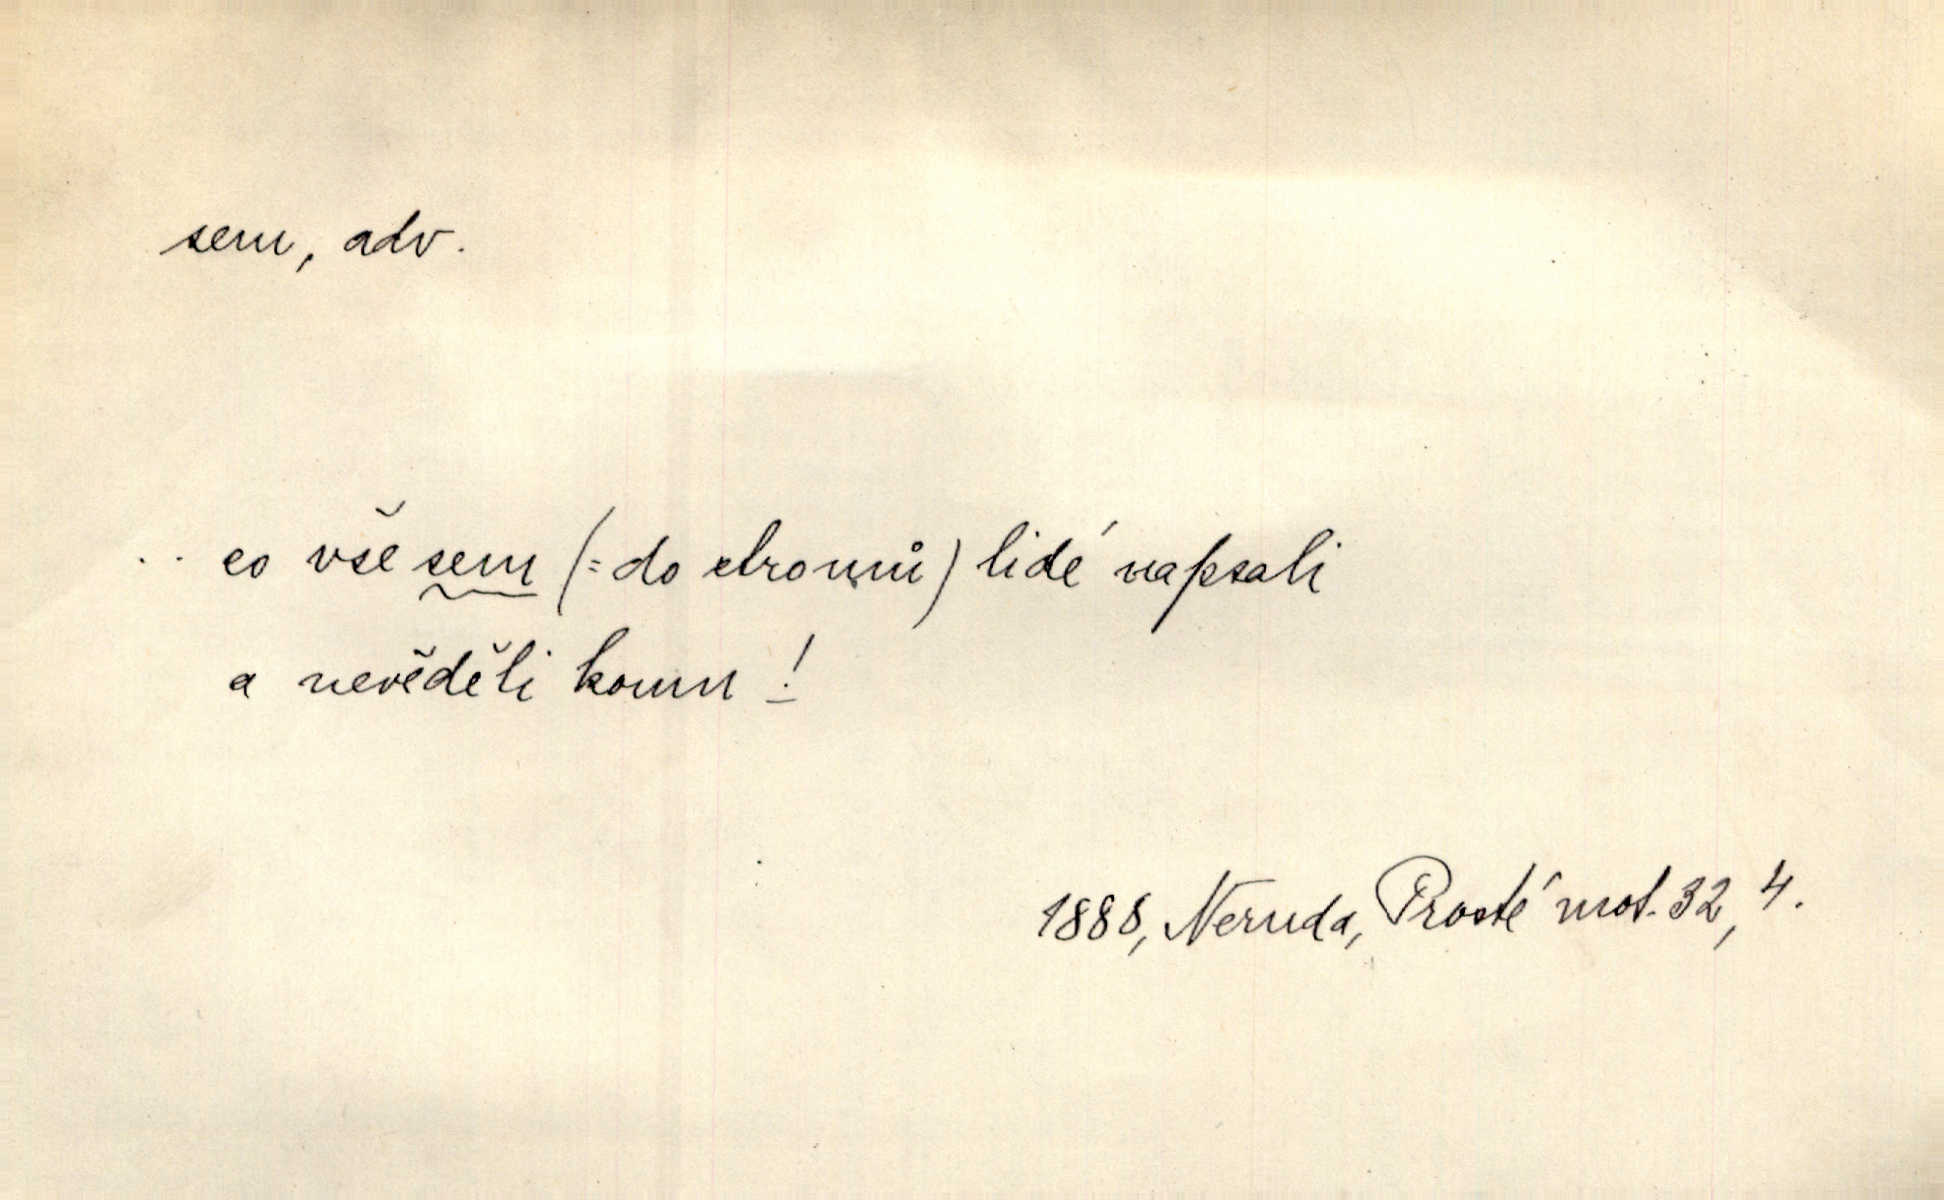 sem, adv.
.. co vše sem (= do stromů) lidé napsali
a nevěděli komu!
1888, Neruda, Prosté mot. 32, 4.